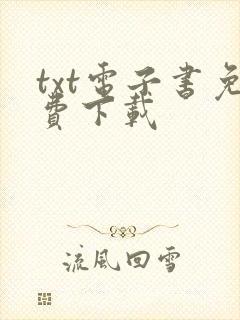 txt電子書免
費下載
流風回雪